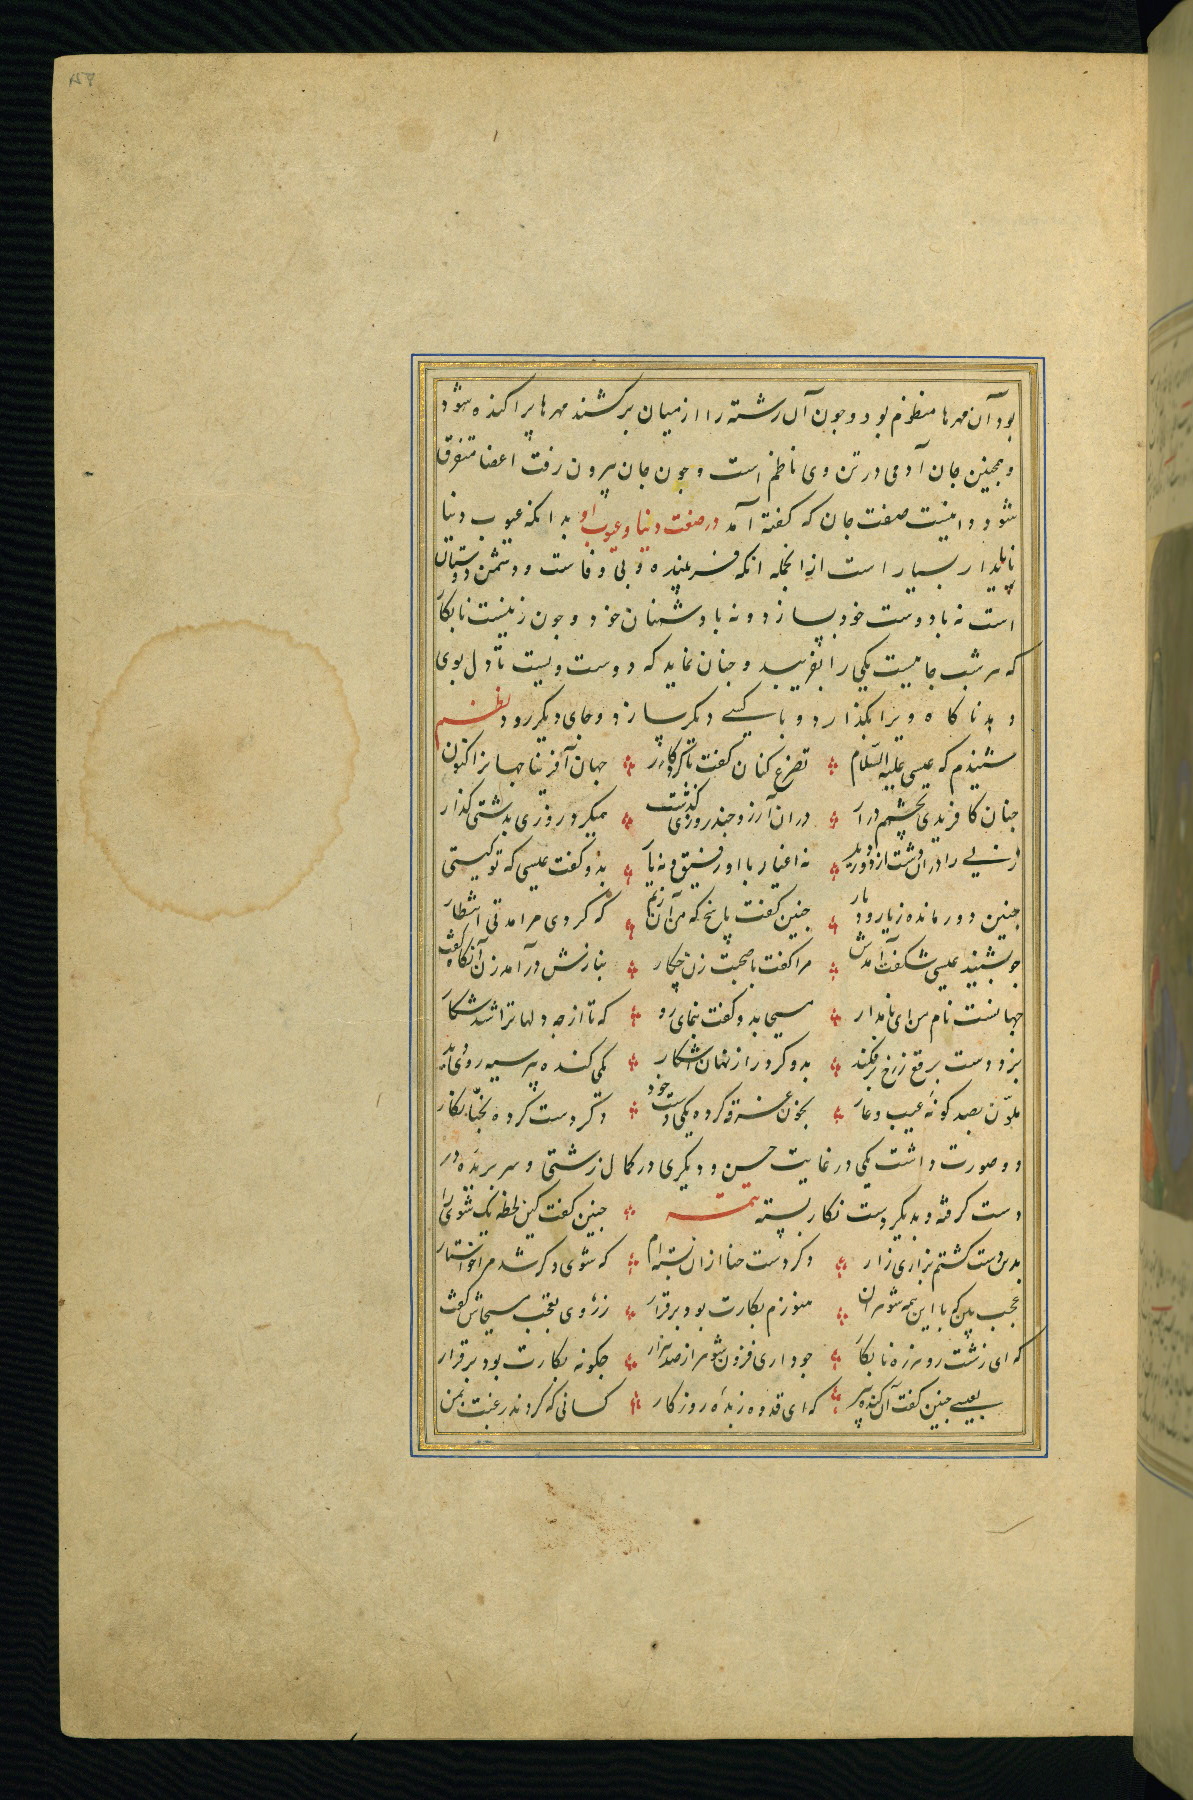 بود آن مهرها منظوم بود و چون آن رشته را از میان برکشند مهرها پراکنده شود
و همچنین جان آدمی در تن وی ناظم است و چون جان بیرون رفت اعضا متفرق
شود و اینست صفت جان که گفته آمد در صفت دنیا و عیوب او بدانکه عیوب دنیا
ناپایدار بسیار است از انجمله انکه فریبنده و بی وفاست و دشمن دوستان
است نه با دوست خود بسازد و نه با دشمنان خود و چون زنیست نابکار
که هر شب جاییست یکی را بفریبد و چنان نماید که دوست ویست تا دل بوی
دهد ناکاه ویرا بکذارد و با کسی دیکر سازد و جای دیکر رود نظم
شنیدم که عیسی علیه السلام تضرع کنان کفت تا کردکار جهان آفرینا جهانرا کنون
چنان کافریدی بچشمم درآر دران آرزو چند روزی کذشت همیکرد روزی بدشتی کذار
زنی را دران دشت از دور دید نه اغیار با او رفیق و نه یار بدو کفت عیسی که تو کیستی
چنین دور مانده ز یار و دیار چنین کفت پاسخ که من آن زنم که کردی مرا مدتی انتظار
چو بشنید عیسی شکفت آمدش مرا کفت با صحبت زن چکار بنازش درآمد زن آنکاه کفت
جهانست نام من ای نامدار مسیحا بدو کفت بنمای رو که تا از چه دلها ترا شد شکار
بزد دست برقع ز رخ برفکند بدو کرد راز نهان آشکار یکی کنده پیر سیه روی دید
ملون بصد کونه عیب و عار بخون غرقه کرده یکی دست خود دکر دست کرده بحنا نکار
دو صورت داشت یکی در غایت حسن و دیکری در کمال زشتی و سر بریده در
دست کرفته و بدیکر دست نکار بسته تتمه چنین کفت کین لحظه یک شوی را
بدین دست کشتم بزاری زار دکر دست حنا ازان بسته ام که شوی دکر شد مرا خواستار
عجب بین که با این همه شوهران هنوزم بکارت بود برقرار ز روی تعجب مسیحاش کفت
که ای زشت رو هرزه نابکار چو داری فزون شوهر از صد هزار چکونه بکارت بود برقرار
بعیسی چنین کفت آن کنده پیر که ای قدوه زبده روزکار کسانی که کردند رغبت بمن